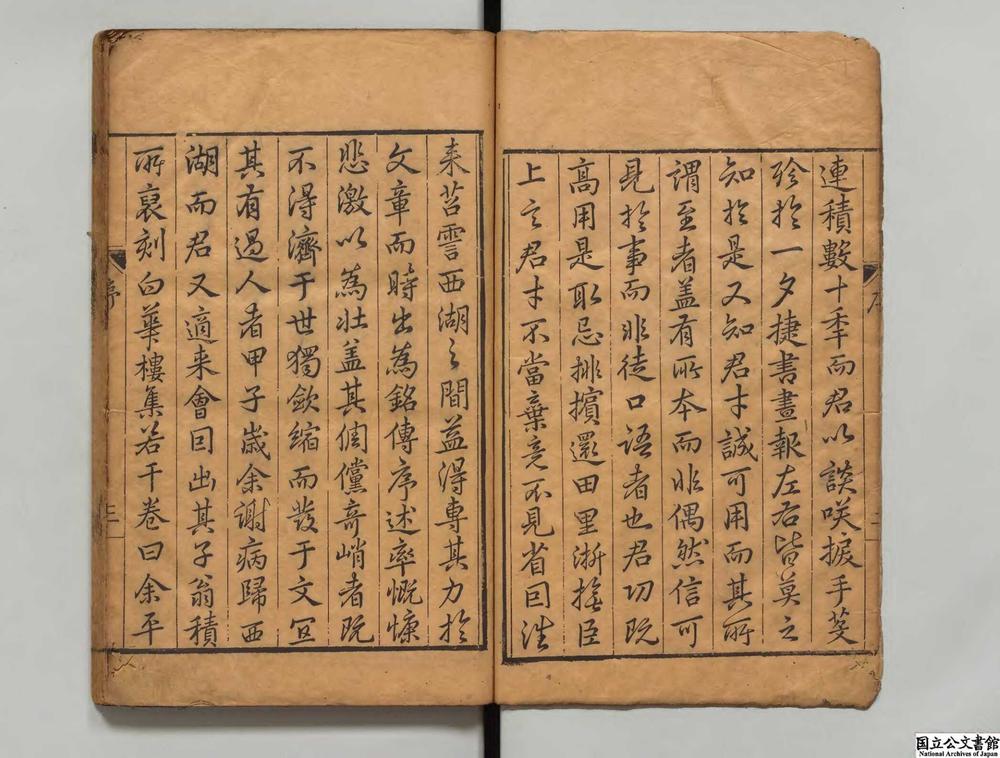 連積數十季而君以談咲捩手芟
殄於一夕捷書晝報左右皆莫之
知於是又知君才誠可用而其所
謂至者盖有所本而非偶然信可
見於事而非徒口語者也君功既
高用是取忌排擯還田里浙撫臣
上言君才不當棄竟不見省囙往
来苕霅西湖之間益得專其力於
文章而時出為銘傳序述率慨慷
悲激以為壯盖其倜儻奇峭者既
不得濟于世獨歛縮而發于文冝
其有過人者甲子歲余謝病歸西
湖而君又適来會囙出其子翁積
所裒刻白華樓集若干卷曰余平
序
国立公文書館
National Archives of Japan